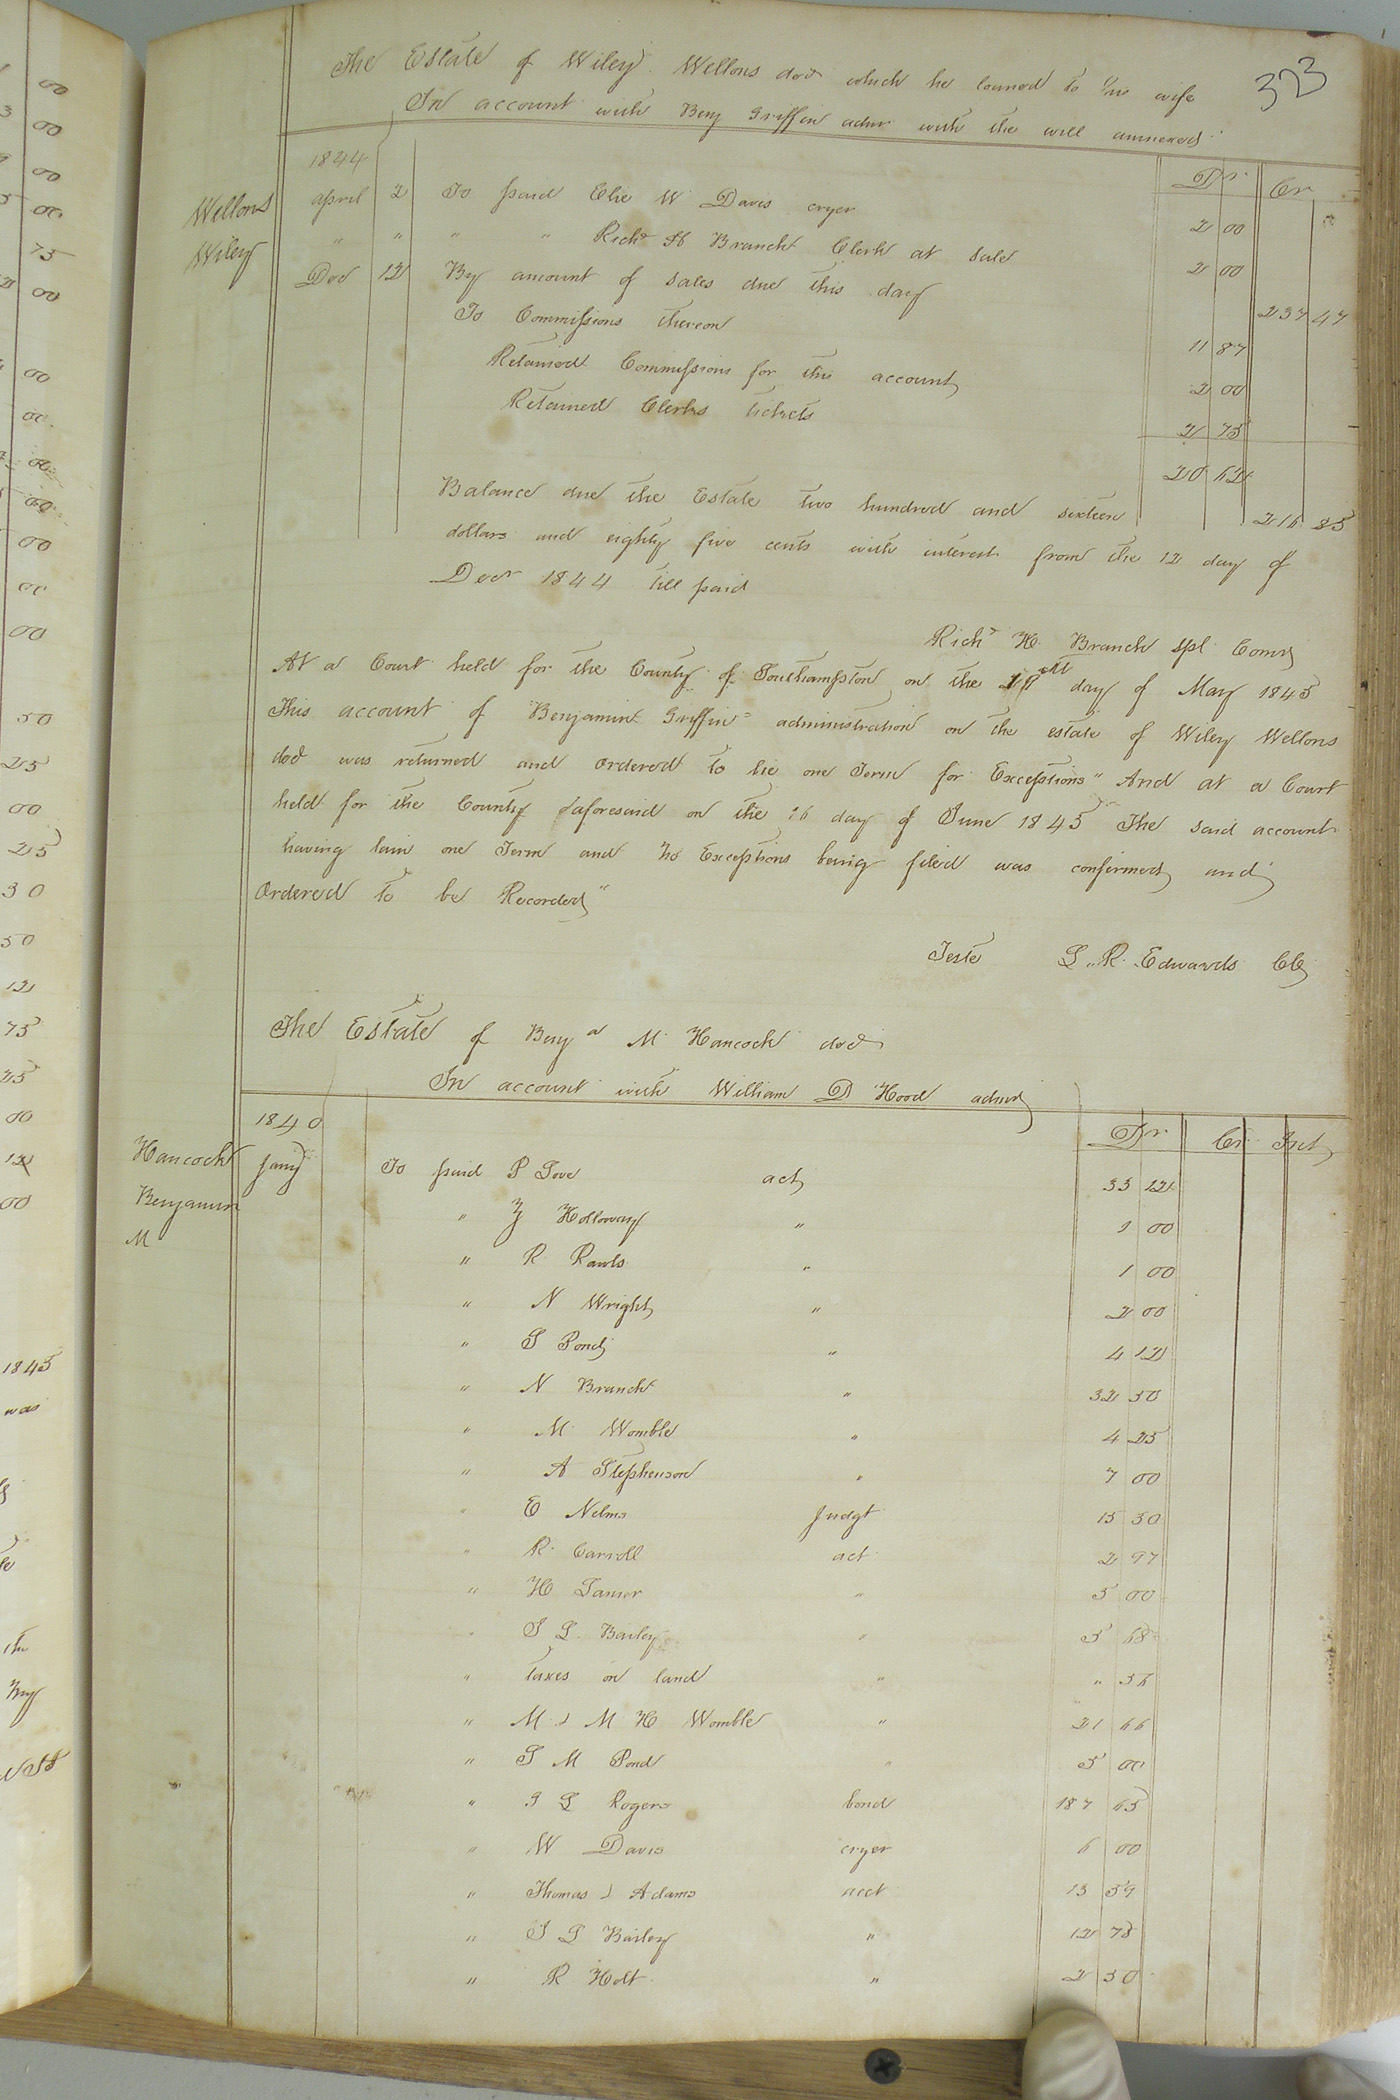 323
The Estate of Wiley Wellons decd which he loaned to his wife
In account with Benj Griffin admr with the will annexed
Dr Cr
1844
Wellons Wiley
April 2 To paid Elie W Davis cryer 2 00
" " " " Richd H Branch Clerk at sale 2 00
Dec 12 By amount of sales due this day 237 47
To Commissions thereon 11 87
Retained Commissions for this account 2 00
Retained Clerks tickets 2 75
20 62
Balance due the Estate two hundred and sixteen 216 85
dollars and eighty five cents with interest from the 12 day of
Decr 1844 till paid
Richd H. Branch spl Comr
At a Court held for the County of Southampton on the day of May 1845
This account of Benjamin Griffin administration on the estate of Wiley Wellons
decd was returned and ordered to lie one Term for Exceptions" And at a Court
held for the County aforesaid on the 16 day of June 1845 The said account
having lain one Term and no Exceptions being filed was confirmed and
Ordered to be Recorded"
Teste L. R. Edwards Clk
The Estate of Benja M. Hancock decd
In account with William D Hood admr
Dr Cr Int
1840
Hancock Benjamin M
Jany To paid P Love act 33 12
" Z Holloway " 1 00
" R Rawls " 1 00
" N Wright " 2 00
" S Pond " 4 12
" N Branch " 32 50
" M. Womble " 4 25
" A Stephenson " 7 00
" E Nelms Judgt 15 30
" R. Carroll act 2 97
" H Lanier " 5 00
" S L Bailey " 5 68
" Taxes on land " " 56
" M & M H Womble " 21 66
" S M Pond " 5 00
" L Rogers bond 187 65
" W Davis cryer 6 00
" Thomas & Adams acct 13 59
" S L Bailey " 12 78
" R Holt " 2 50
00
00
00
00
75
00
00
00
00
00
00
00
00
50
25
00
25
30
50
12
75
25
00
12
00
1845
was
the